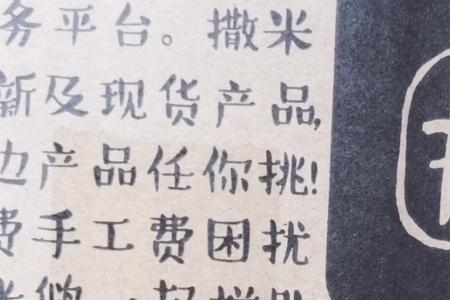 务平台。撒米
新及现货产品,
边产品任你挑!
费手工费困扰